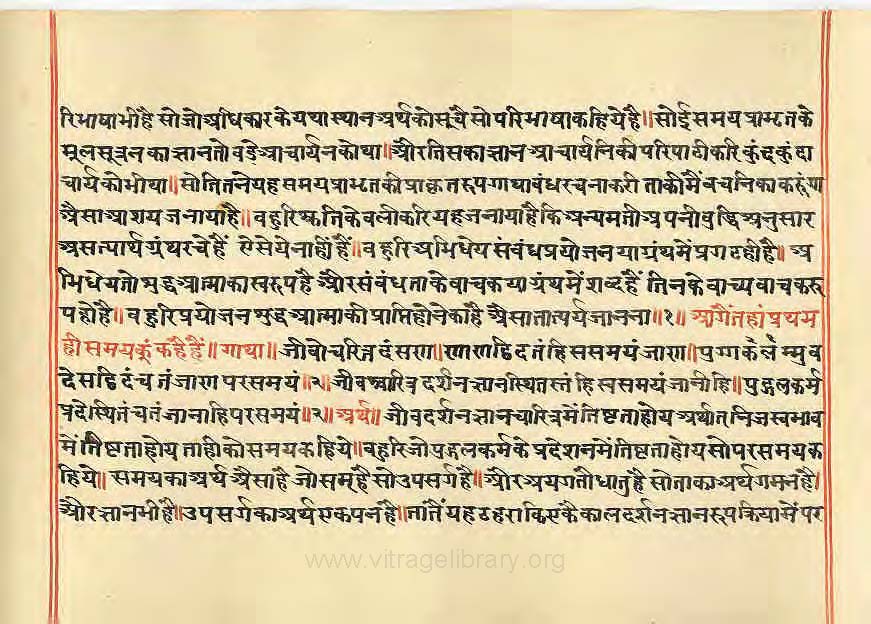 रिभाषाभीहै सोजोअधिकारकेयथास्थानअर्थकोसूचैसोपरिभाषाकहियेहै॥सोईसमयप्राभृतके
मूलसूत्रनकाज्ञानतोवडेआचार्यनकोथा॥औरतिसकाज्ञानआचार्यनिकीपरिपाटीकरिकुंदकुंदा
चार्यकोभीथा॥सोतिननेयहसमयप्राभृतकीप्राकृतरूपगाथाबंधरचनाकरीताकीमैंवचनिकाकरूंगा
औसाआशयजनायाहै॥वहुरिश्रुतकेवलीकरियहजनायाहैकिअन्यमतीअपनीवुद्धिअनुसार
असत्यार्थग्रंथरचेहैं ऐसेयेनाहींहैं॥वहुरिअभिधेयसंबंधप्रयोजनयाग्रंथमेंप्रगटहीहै॥अ
भिधेयतोशुद्धआत्माकास्वरूपहै औरसंबंधताकेवाचकयाग्रंथमेंशब्दहैं तिनकेवाच्यवाचकरू
पहोहै॥वहुरिप्रयोजनशुद्धआत्माकीप्राप्तिहोनेकाहै औसातात्पर्यजानना॥१॥ आगैंतहांप्रथम
हीसमयकूंकहैहैं॥गाथा॥जीवोचरित्तदंसण॥णाणट्ठिदतंहिससमयंजाण॥पुग्गलकम्मुव
देसट्ठिदंचतंजाणपरसमयं॥२॥जीवश्चारित्रदर्शनज्ञानस्थितस्तंहिस्वसमयंजानीहि॥पुद्गलकर्म
प्रदेशस्थितंचतंजानाहिपरसमयं॥२॥अर्थ॥जीवदर्शनज्ञानचारित्रमेंतिष्टताहोयअर्थात्निजस्वभाव
मेंतिष्टताहोयताहीकोसमयकहिये॥वहुरिजोपुद्गलकर्मकेप्रदेशनमेंतिष्टताहोयसोपरसमयक
हिये॥ समयकाअर्थऔसाहै जोसम्हैसोउपसर्गहै॥औरअयगतौधातुहै सोताकाअर्थगमनहै।
औरज्ञानभीहै॥उपसर्गकाअर्थएकपनहै॥तातैंयहठहराकिएकैकालदर्शनज्ञानरूपक्रियामेंपर
www.vitragelibrary.org